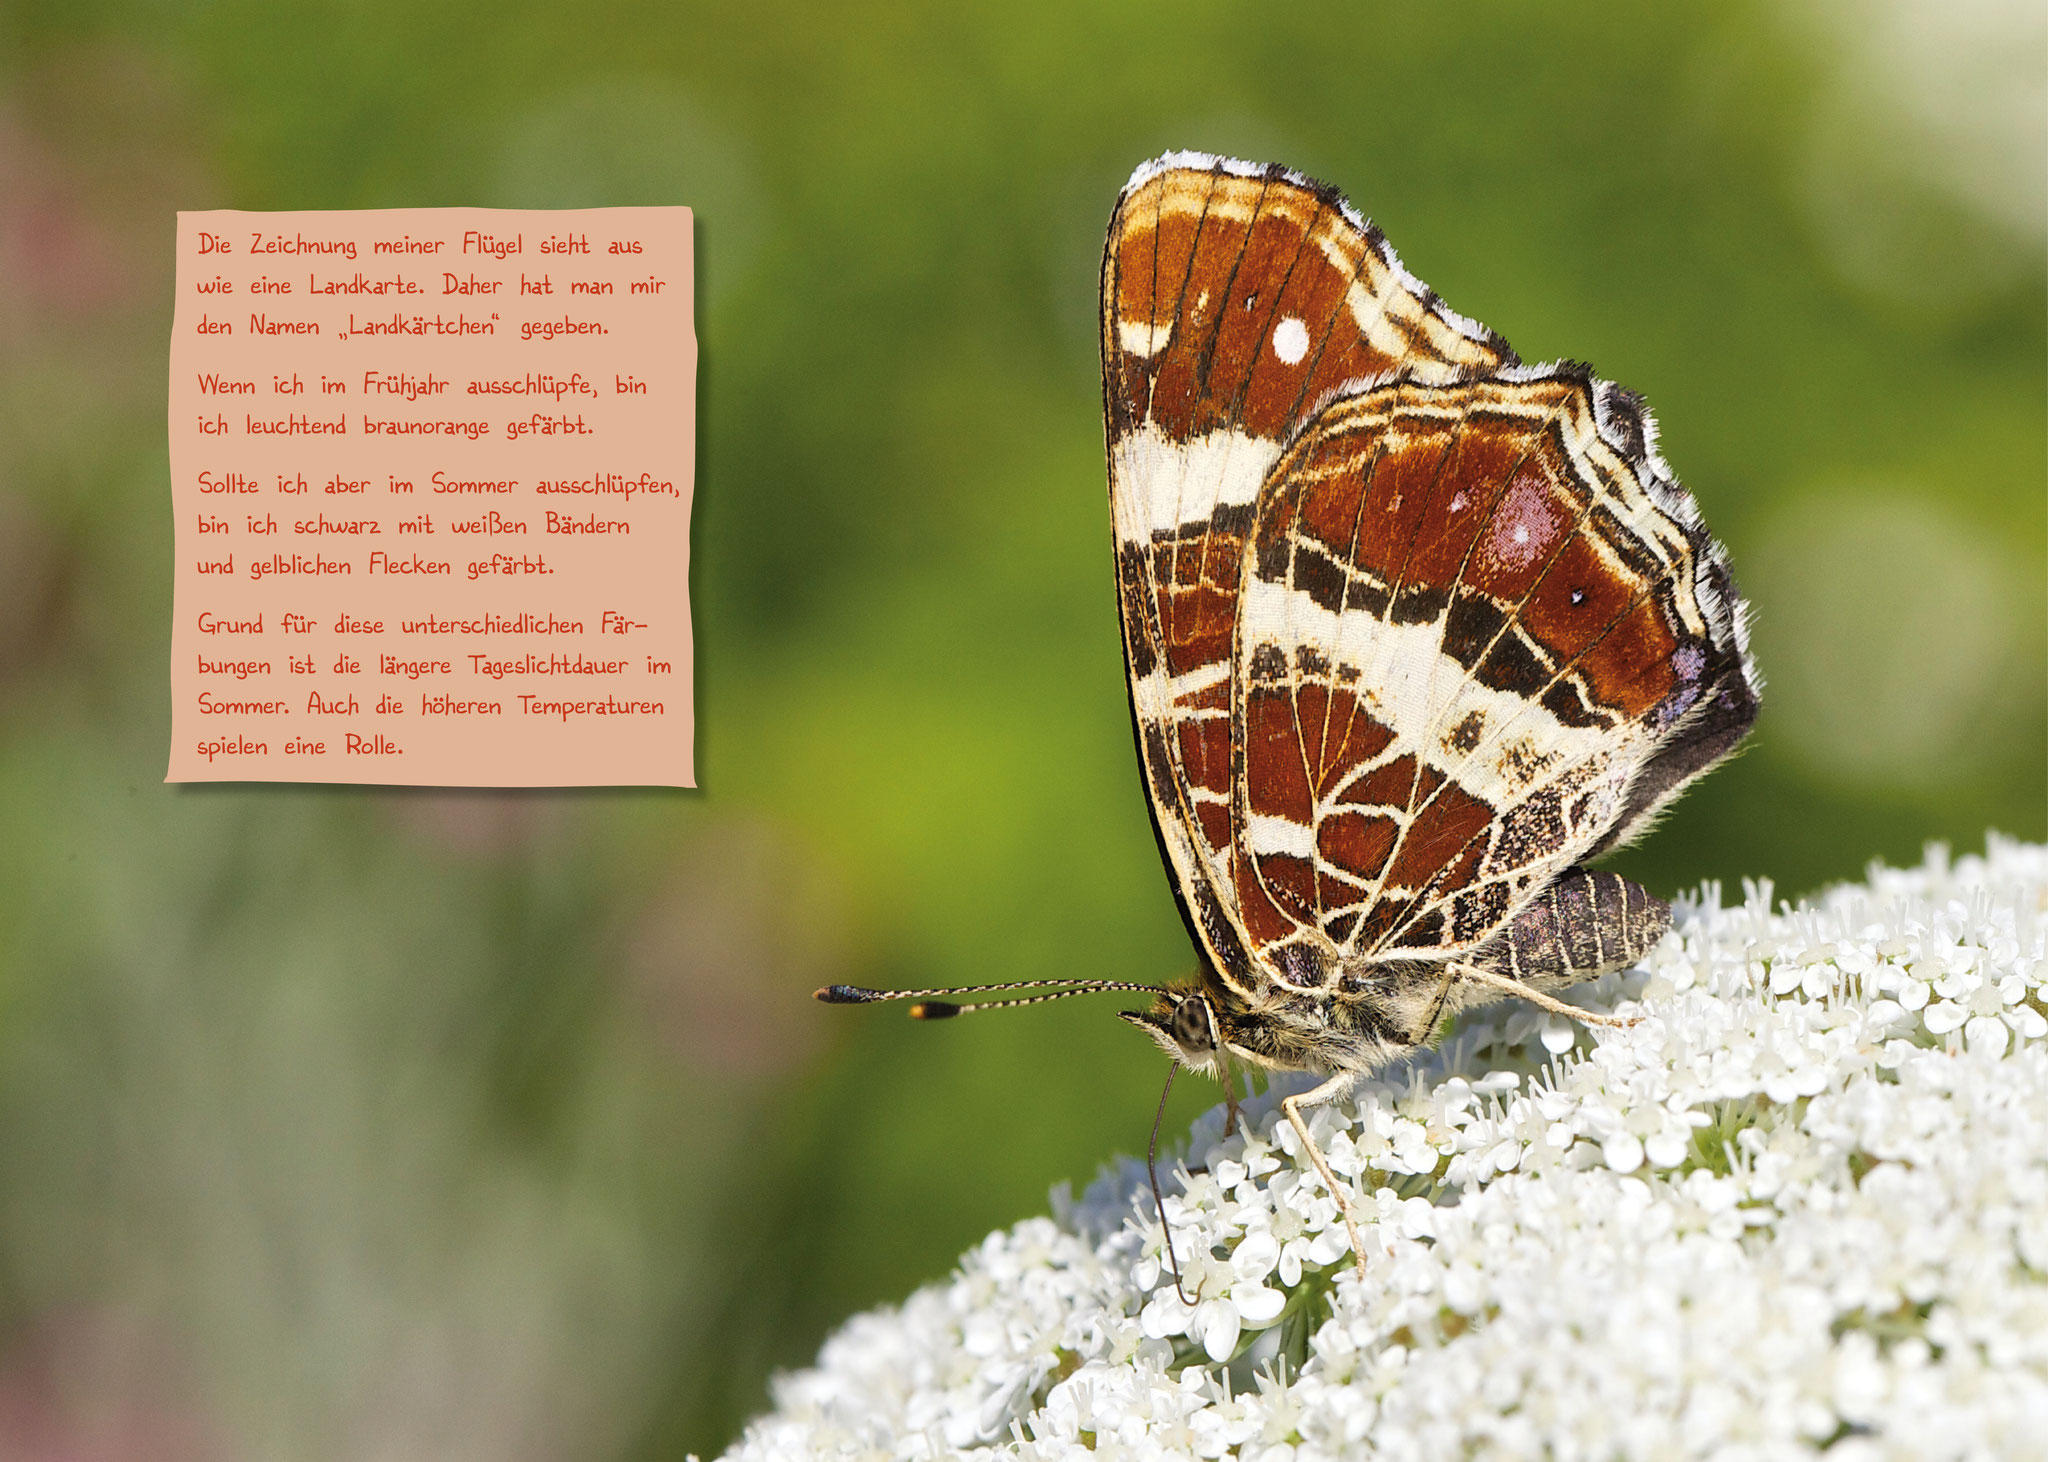 Die Zeichnung meiner Flügel sieht aus
wie eine Landkarte. Daher hat man mir
den Namen „Landkärtchen“ gegeben.
Wenn ich im Frühjahr ausschlüpfe, bin
ich leuchtend braunorange gefärbt.
Sollte ich aber im Sommer ausschlüpfen,
bin ich schwarz mit weißen Bändern
und gelblichen Flecken gefärbt.
Grund für diese unterschiedlichen Fär-
bungen ist die längere Tageslichtdauer im
Sommer. Auch die höheren Temperaturen
spielen eine Rolle.